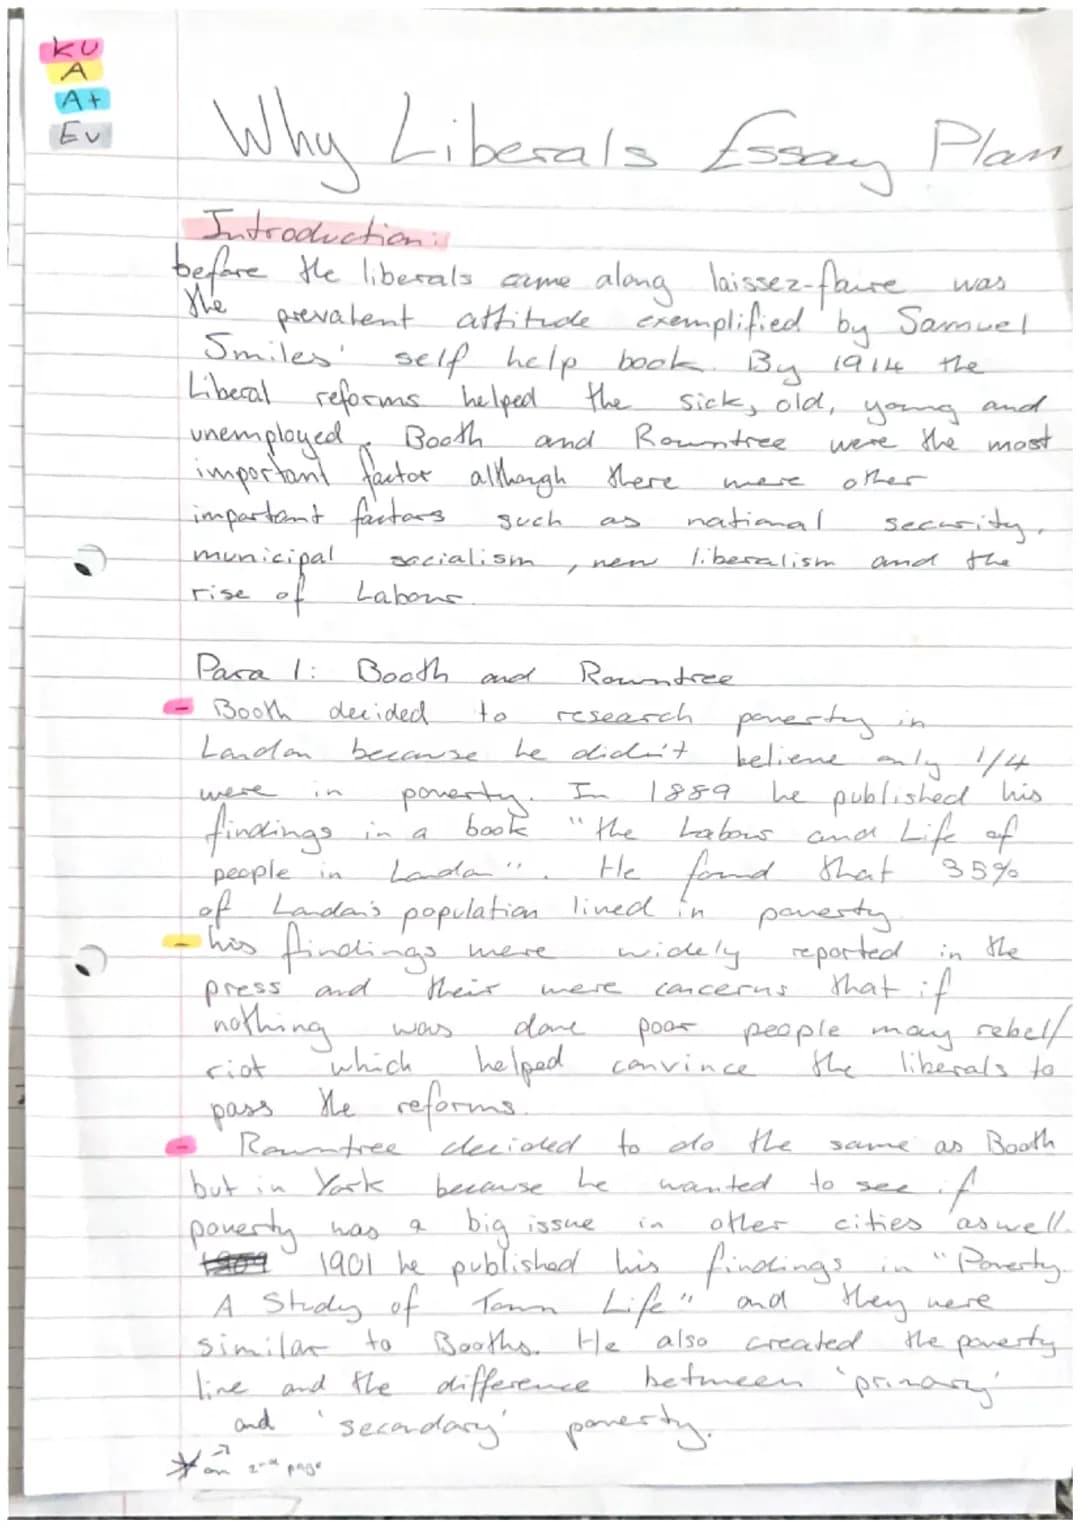 KU
A
A+
Ev
Why Liberals Essay Plan
Introduction:
before the liberals came along laissez-faire was
the prevalent attitude exemplified by Samuel
Smiles' self help book. By 1914 the
Liberal reforms helped the sick, old, young and
unemployed. Booth and Rowntree were the most
important factor although there were other
important factors such as national security,
municipal socialism, new liberalism and the
rise of Labour.
Para 1: Booth and Rowntree
- Booth decided to research poverty in
London because he didn't believe only 1/4
were in poverty. In 1889 he published his
findings in a book "the Labour and Life of
people in London". He found that 35%
of London's population lived in poverty
- his findings were widely reported in the
press and their were concerns that if
nothing was done poor people may rebel/
riot which helped convince the liberals to
pass the reforms.
- Rowntree decided to do the same as Booth
but in York because he wanted to see if
poverty was a big issue in other cities aswell.
1901 he published his findings in "Poverty.
A Study of Town Life" and they were
similar to Booths. He also created the poverty
line and the difference between 'primary'
and 'secondary' poverty.
* on 2nd page